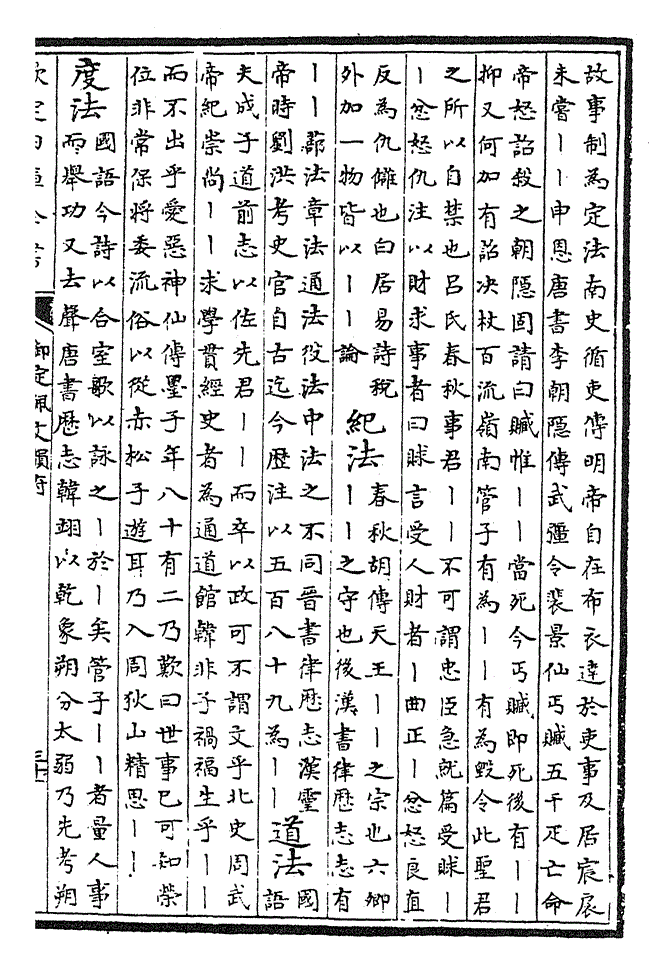 故事制為定法南史循吏傳明帝自在布衣達於吏事及居宸扆
未嘗丨丨申恩唐書李朝隱傳武彊令裴景仙丐贓五千疋亡命
帝怒詔殺之朝隱固請曰贓惟丨丨當死今丐贓即死後有丨丨
抑又何加有詔決杖百流嶺南管子有為丨丨有為毀令此聖君
之所以自禁也呂氏春秋事君丨丨不可謂忠臣急就篇受賕丨
丨忿怒仇注以財求事者曰賕言受人財者丨曲正丨忿怒良直
反為仇讎也白居易詩税
外加一物皆以丨丨論
紀法
春秋胡傳天王丨丨之宗也六卿
丨丨之守也後漢書律歷志志有
丨丨蔀法章法通法役法中法之不同晉書律歷志漢靈
帝時劉洪考史官自古迄今歷注以五百八十九為丨丨
道法
國
語
夫成子道前志以佐先君丨丨而卒以政可不謂文乎北史周武
帝紀崇尚丨丨求學貫經史者為通道館韓非子禍福生乎丨丨
而不出乎愛惡神仙傳墨子年八十有二乃歎曰世事已可知榮
位非常保將委流俗以從赤松子遊耳乃入周狄山精思丨丨
度法
國語今詩以合室歌以詠之丨於丨矣管子丨丨者量人事
而舉功又去聲唐書歷志韓翊以乾象朔分太弱乃先考朔
欽定四庫全書
御定佩文韻府